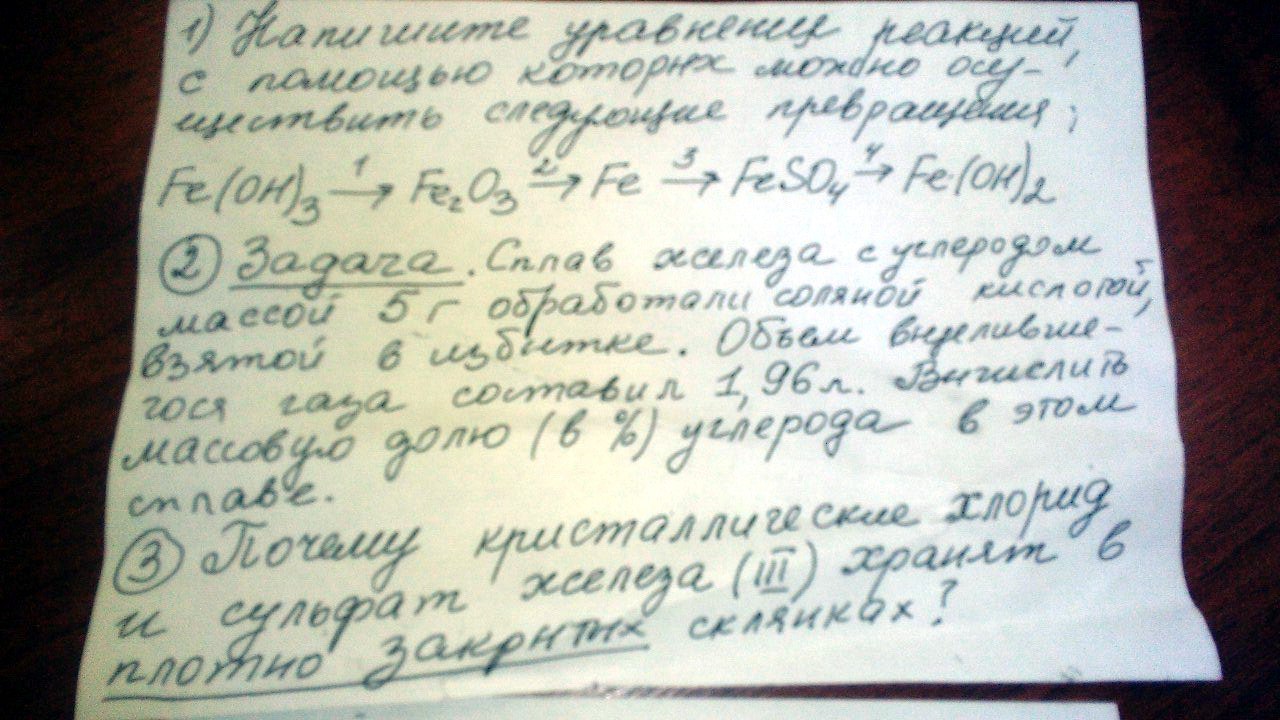 1) Напишите уравнения реакций,
с помощью которых можно осу-
ществить следующие превращения;
Fe(OH)₃ →¹ Fe₂O₃ →² Fe →³ FeSO₄ →⁴ Fe(OH)₂
② Задача. Сплав железа с углеродом
массой 5 г обработали соляной кислотой,
взятой в избытке. Объем выделивше-
гося газа составил 1,96 л. Вычислить
массовую долю (в %) углерода в этом
сплаве.
③ Почему кристаллические хлорид
и сульфат железа (III) хранят в
плотно закрытых склянках?